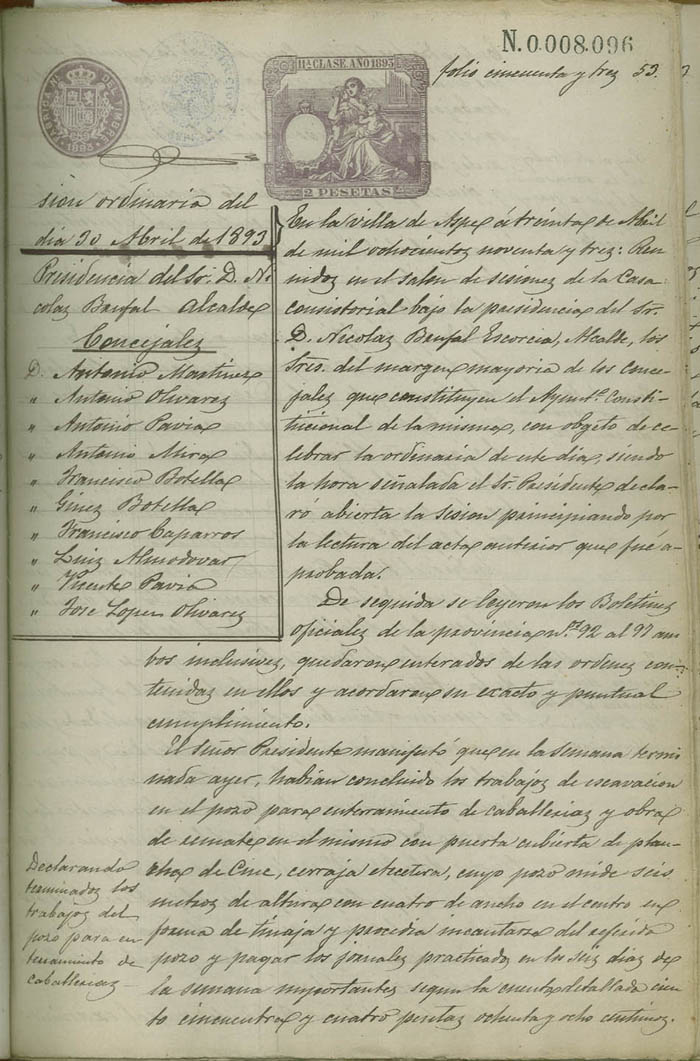 N.0.008.096
folio cincuenta y trez 53.
FABRICA N. DEL TIMBRE
1893
11ª CLASE. AÑO 1893
2 PESETAS
sion ordinaria del
dia 30 Abril de 1893
Presidencia del Sr. D. Ni
colaz Banfal Alcalde
Concejalez
D. Antonio Martinez
" Antonio Olivarez
" Antonio Pavia
" Antonio Mira
" Francisco Botella
" Ginez Botella
" Francisco Caparros
" Luiz Almodovar
" Vicente Pavia
" Jose Lopez Olivarez
En la villa de Aspe á treinta de Abril
de mil ochocientos noventa y trez: Reu
nidoz en el salon de sesionez de la Casa
consistorial bajo la presidencia del Sr.
D. Nicolaz Banfal Escorcia, Alcalde, los
Sres. del margen mayoria de los conce-
jalez que constituyen el Ayuntº. Consti-
tucional de la misma, con objeto de ce-
lebrar la ordinaria de este dia, siendo
la hora señalada el Sr. Presidente decla-
ró abierta la sesion principiando por
la lectura del acta anterior que fué a-
probada.
De seguida se leyeron los Boletines
oficialez de la provincia nos. 92 al 97 am
bos inclusivez, quedaron enterados de las ordenez con-
tenidaz en ellos y acordaron su exacto y puntual
cumplimiento.
El Señor Presidente manifestó que en la semana termi
nada ayer, habian concluido los trabajoz de escavacion
en el pozo para enterramiento de caballeriaz y obra
de remate en el mismo con puerta cubierta de plan-
cha de Cinc, cerraja etcetera, cuyo pozo mide seis
metroz de altura con cuatro de ancho en el centro en
forma de tinaja y procedia incautarse del referido
pozo y pagar los jornalez practicadoz en los seiz diaz de
la semana importantez segun la cuenta detallada cien
to cincuenta y cuatro pesetaz ochenta y ocho centimoz.
Declarando
terminadoz los
trabajoz del
pozo para en
terramiento de
caballeriaz